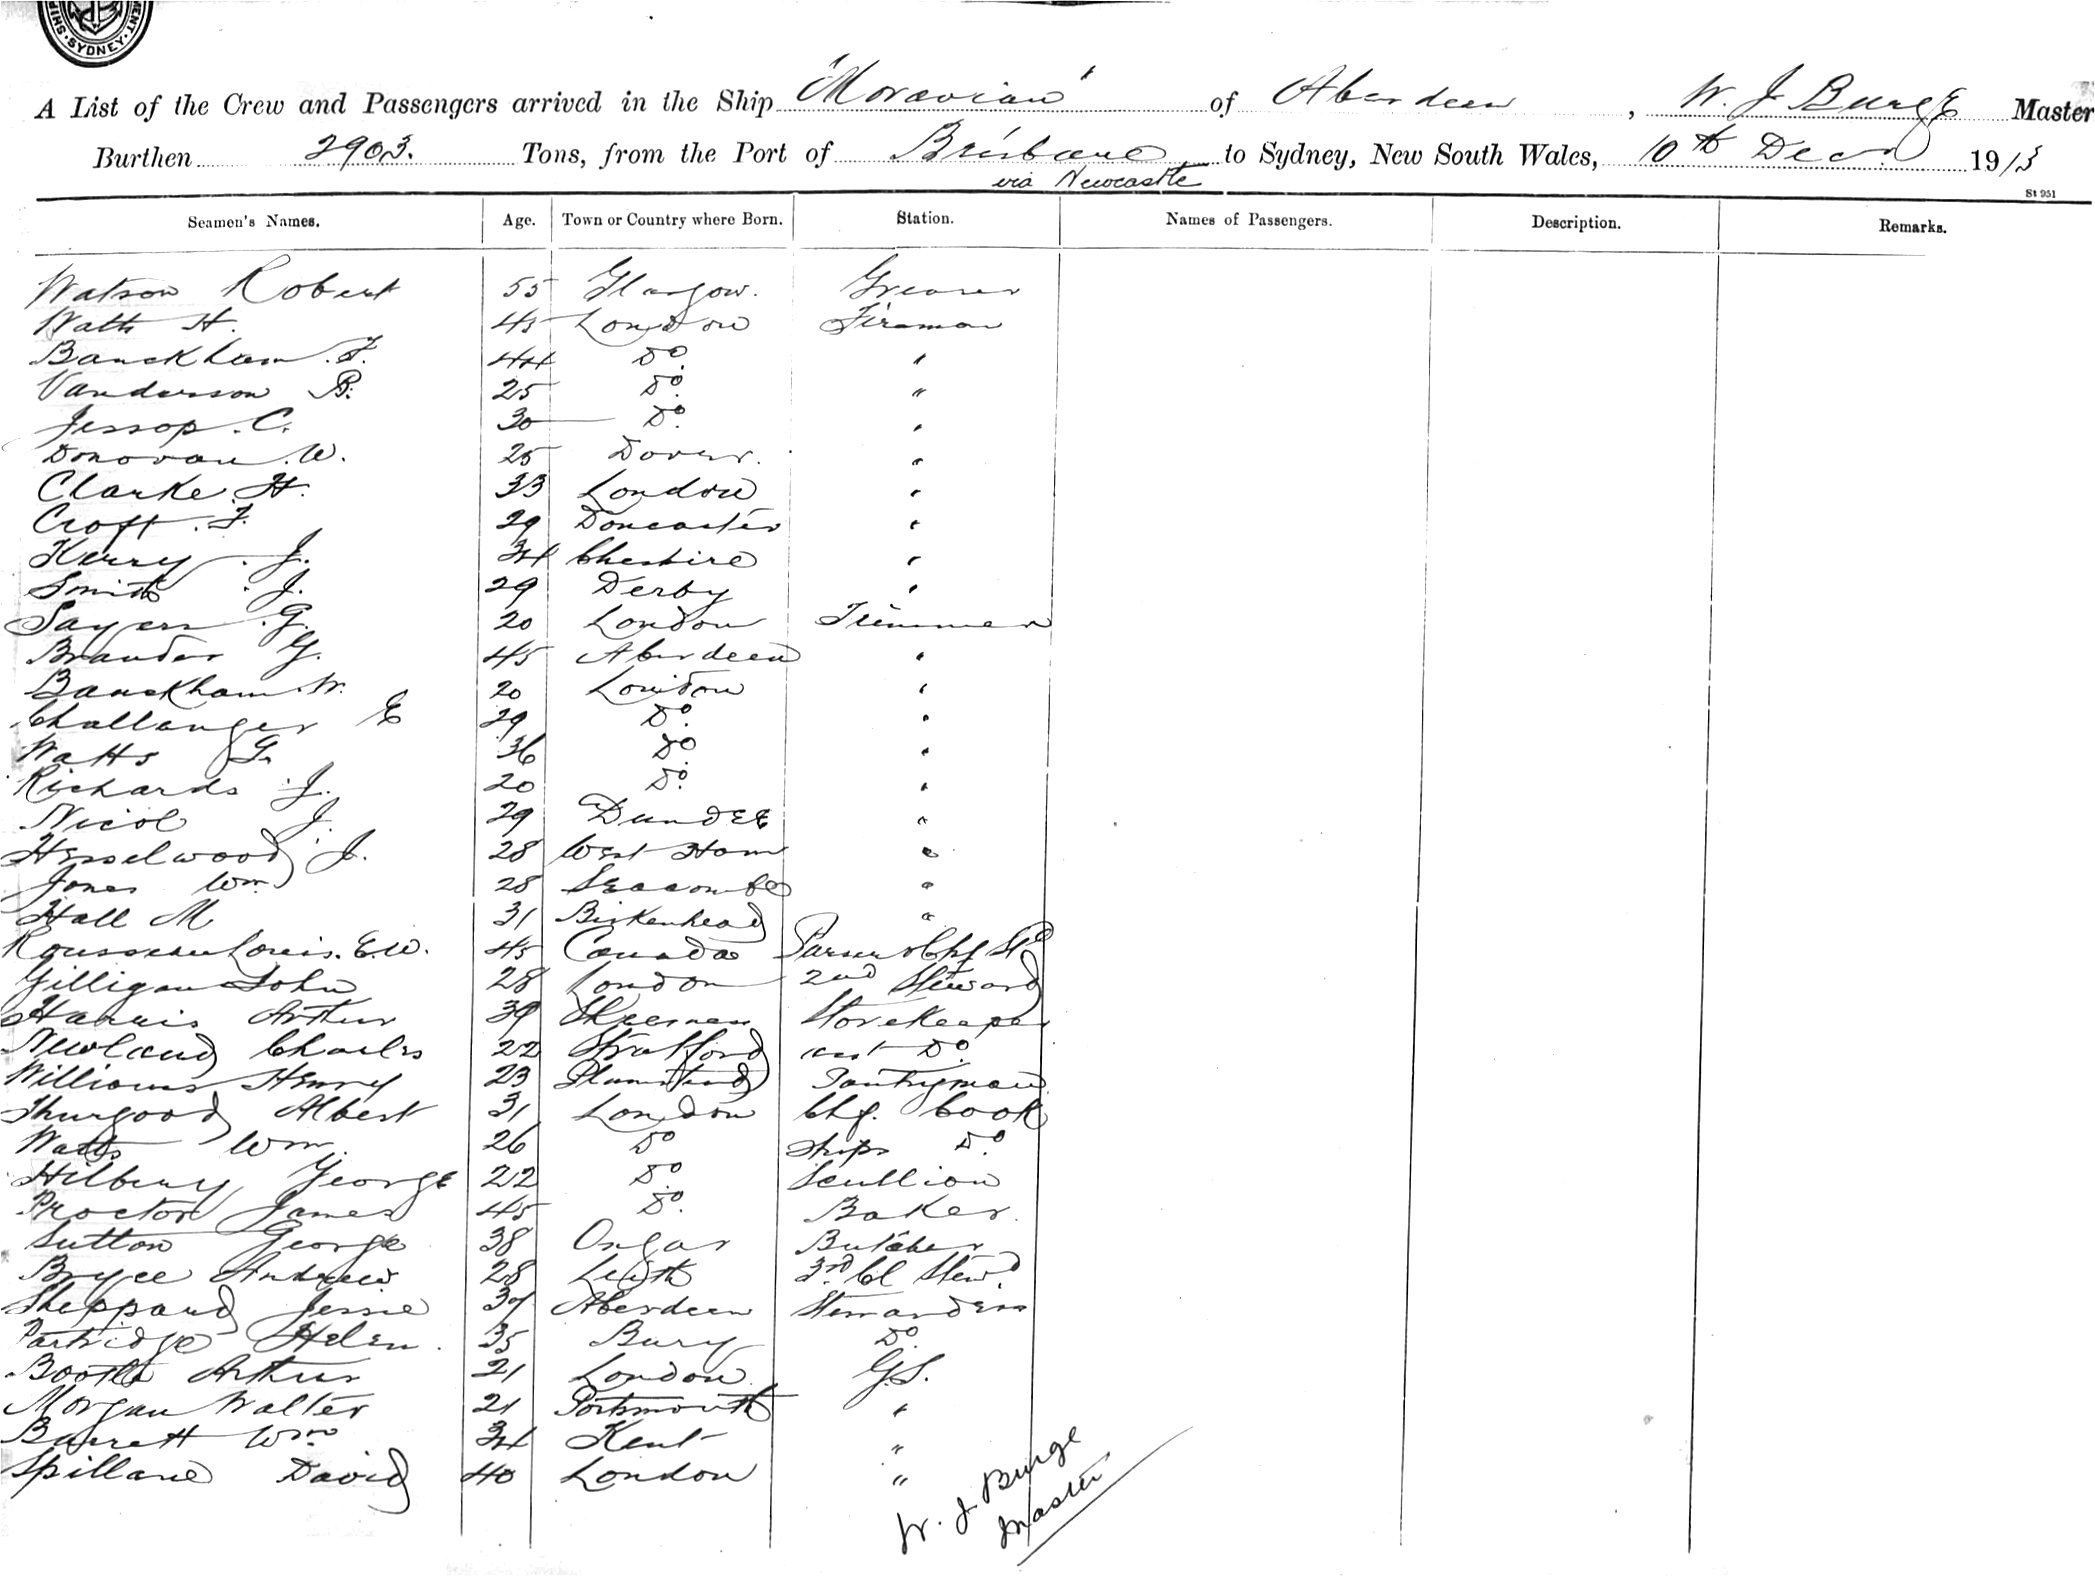 SYDNEY
A List of the Crew and Passengers arrived in the Ship "Moravian" of Aberdeen, W. J. Burge Master
Burthen 2903. Tons, from the Port of Brisbane to Sydney, New South Wales, 10th Decr 1913
via Newcastle
St 951
Seamen's Names. Age. Town or Country where Born. Station. Names of Passengers. Description. Remarks.
Watson Robert 55 Glasgow. Greaser
Watts H. 45 London Fireman
Banckham. F. 44 Do. "
Vanderson B. 25 Do. "
Jessop. C. 30 Do. "
Donovan. W. 25 Dover. "
Clarke. H. 33 London "
Croft. F. 29 Doncaster "
Kerry. J. 34 Cheshire "
Smith. J. 29 Derby "
Sayers. G. 20 London Trimmer
Brander G. 45 Aberdeen "
Banckham. W. 20 London "
Challanger E 29 Do. "
Watts G. 36 Do "
Richards J. 20 Do. "
Nicol J. 29 Dundee "
Hesselwood J. 28 West Ham "
Jones Wm 28 Seacombe "
Hall M 31 Birkenhead "
Rousseau Louis. E.W. 45 Canada Purser & Chf Std
Gilligan John 28 London 2nd Steward
Harris Arthur 39 Storekeeper
Newland Charles 22 Stratford asst Do.
Williams Henry 23 Plumstead Pantryman
Thurgood Albert 31 London Chf. Cook
Watts Wm. 26 Do Ships Do.
Hilbury George 22 Do. Scullion
Proctor James 45 Do. Baker.
Sutton George 38 Ongar Butcher
Bryce Andrew 28 Leith 3rd Cl Stewd.
Sheppard Jessie 37 Aberdeen Stewardess
Partridge Helen. 35 Bury Do.
Booth Arthur 21 London G.S.
Morgan Walter 21 Portsmouth "
Barrett Wm 34 Kent "
Spillane David 40 London "
W. J Burge
Master